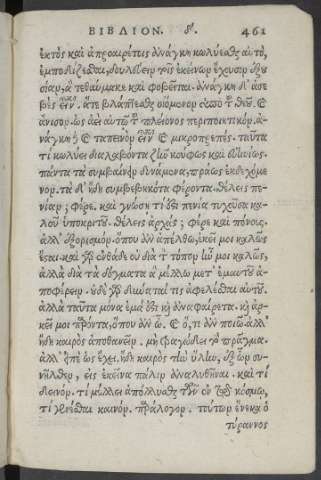 ΒΙΒΛΙΟΝ. δ'. 461
ἐκτὸς καὶ ἀπροαιρέτοις ἀνάγκη κωλύεσθαι αὐτὸ,
ἐμποδίζεσθαι, δουλεύειν τοῖς ἐκείνων ἔχουσιν ἐξου
σίαν, ἃ τεθαύμακε καὶ φοβεῖται. ἀνάγκη δ' ἀσε
βὲς εἶναι. ἅτε βλάπτεσθαι οἰόμενον ὑπὸ τοῦ θεοῦ. καὶ
ἄνισον, ὡς ἀεὶ αὑτῷ τοῦ πλείονος περιποιητικόν. ἀ-
νάγκη δὲ καὶ ταπεινὸν εἶναι καὶ μικροπρεπές. ταῦτα
τί κωλύει διαλαβόντα ζῆν κούφως καὶ εὐηνίως.
πάντα τὰ συμβαίνειν δυνάμενα, πράως ἐκδεχόμε
νον. τὰ δ' ἤδη συμβεβηκότα φέροντα. θέλεις πε-
νίαν; φέρε. καὶ γνώσῃ τί ἐστι πενία τυχοῦσα κα-
λοῦ ὑποκριτοῦ. θέλεις ἀρχάς; φέρε καὶ πόνους.
ἀλλ' ἐξορισμόν. ὅπου ἂν ἀπέλθω, ἐκεῖ μοι καλῶς
ἔσται. καὶ γὰρ ἐνθάδε οὐ διὰ τὸν τόπον ἦν μοι καλῶς,
ἀλλὰ διὰ τὰ δόγματα ἃ μέλλω μετ' ἐμαυτοῦ ἀ-
ποφέρειν. οὐδὲ γὰρ δύναταί τις ἀφελέσθαι αὐτά.
ἀλλὰ ταῦτα μόνα ἐμά ἐστι καὶ ἀναφαίρετα. καὶ ἀρ-
κεῖ μοι παρόντα, ὅπου ἂν ὦ. καὶ ὅ, τι ἂν ποιῶ ἀλλ'
ἤδη καιρὸς ἀποθανεῖν. μὴ τραγῳδει τὸ πρᾶγμα.
ἀλλ' εἰπὲ ὡς ἔχει. ἤδη καιρὸς τὴν ὕλην, ἐξ ὧν συ-
νῆλθεν, εἰς ἐκεῖνα πάλιν ἀναλυθῆναι. καὶ τί
δεινόν. τί μέλλει ἀπόλλυσθαι τῶν ἐν τῷ κόσμῳ,
τί γενέσθαι καινόν. παράλογον. τούτων ἕνεκα ὁ
τύραννος